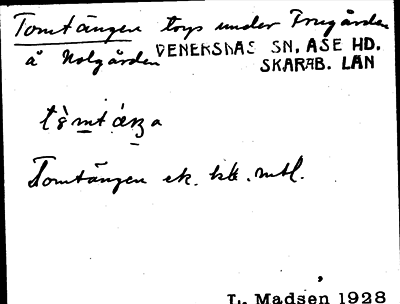 Tomtängen torp under Frugården
å Nolgården VENERSNÄS SN, ÅSE HD.
SKARAB. LÄN
Tomtängen ek. bl.
L. Madsen 1928